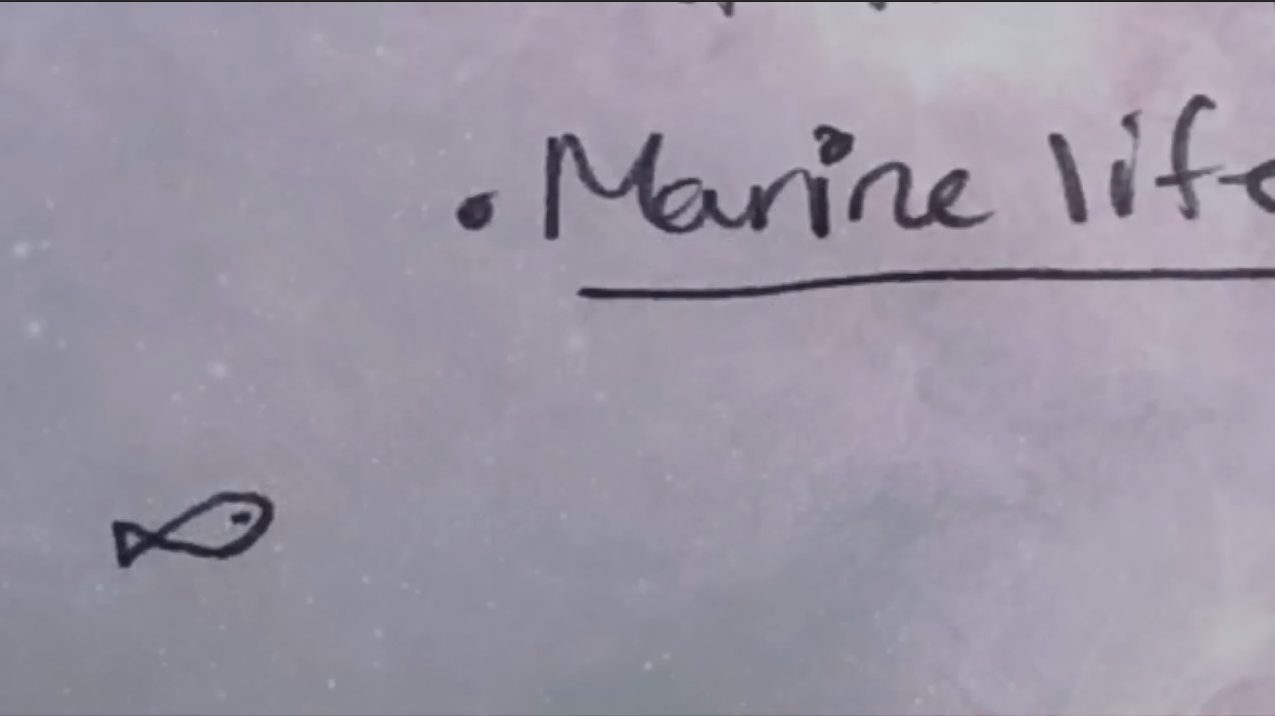 • Marine life